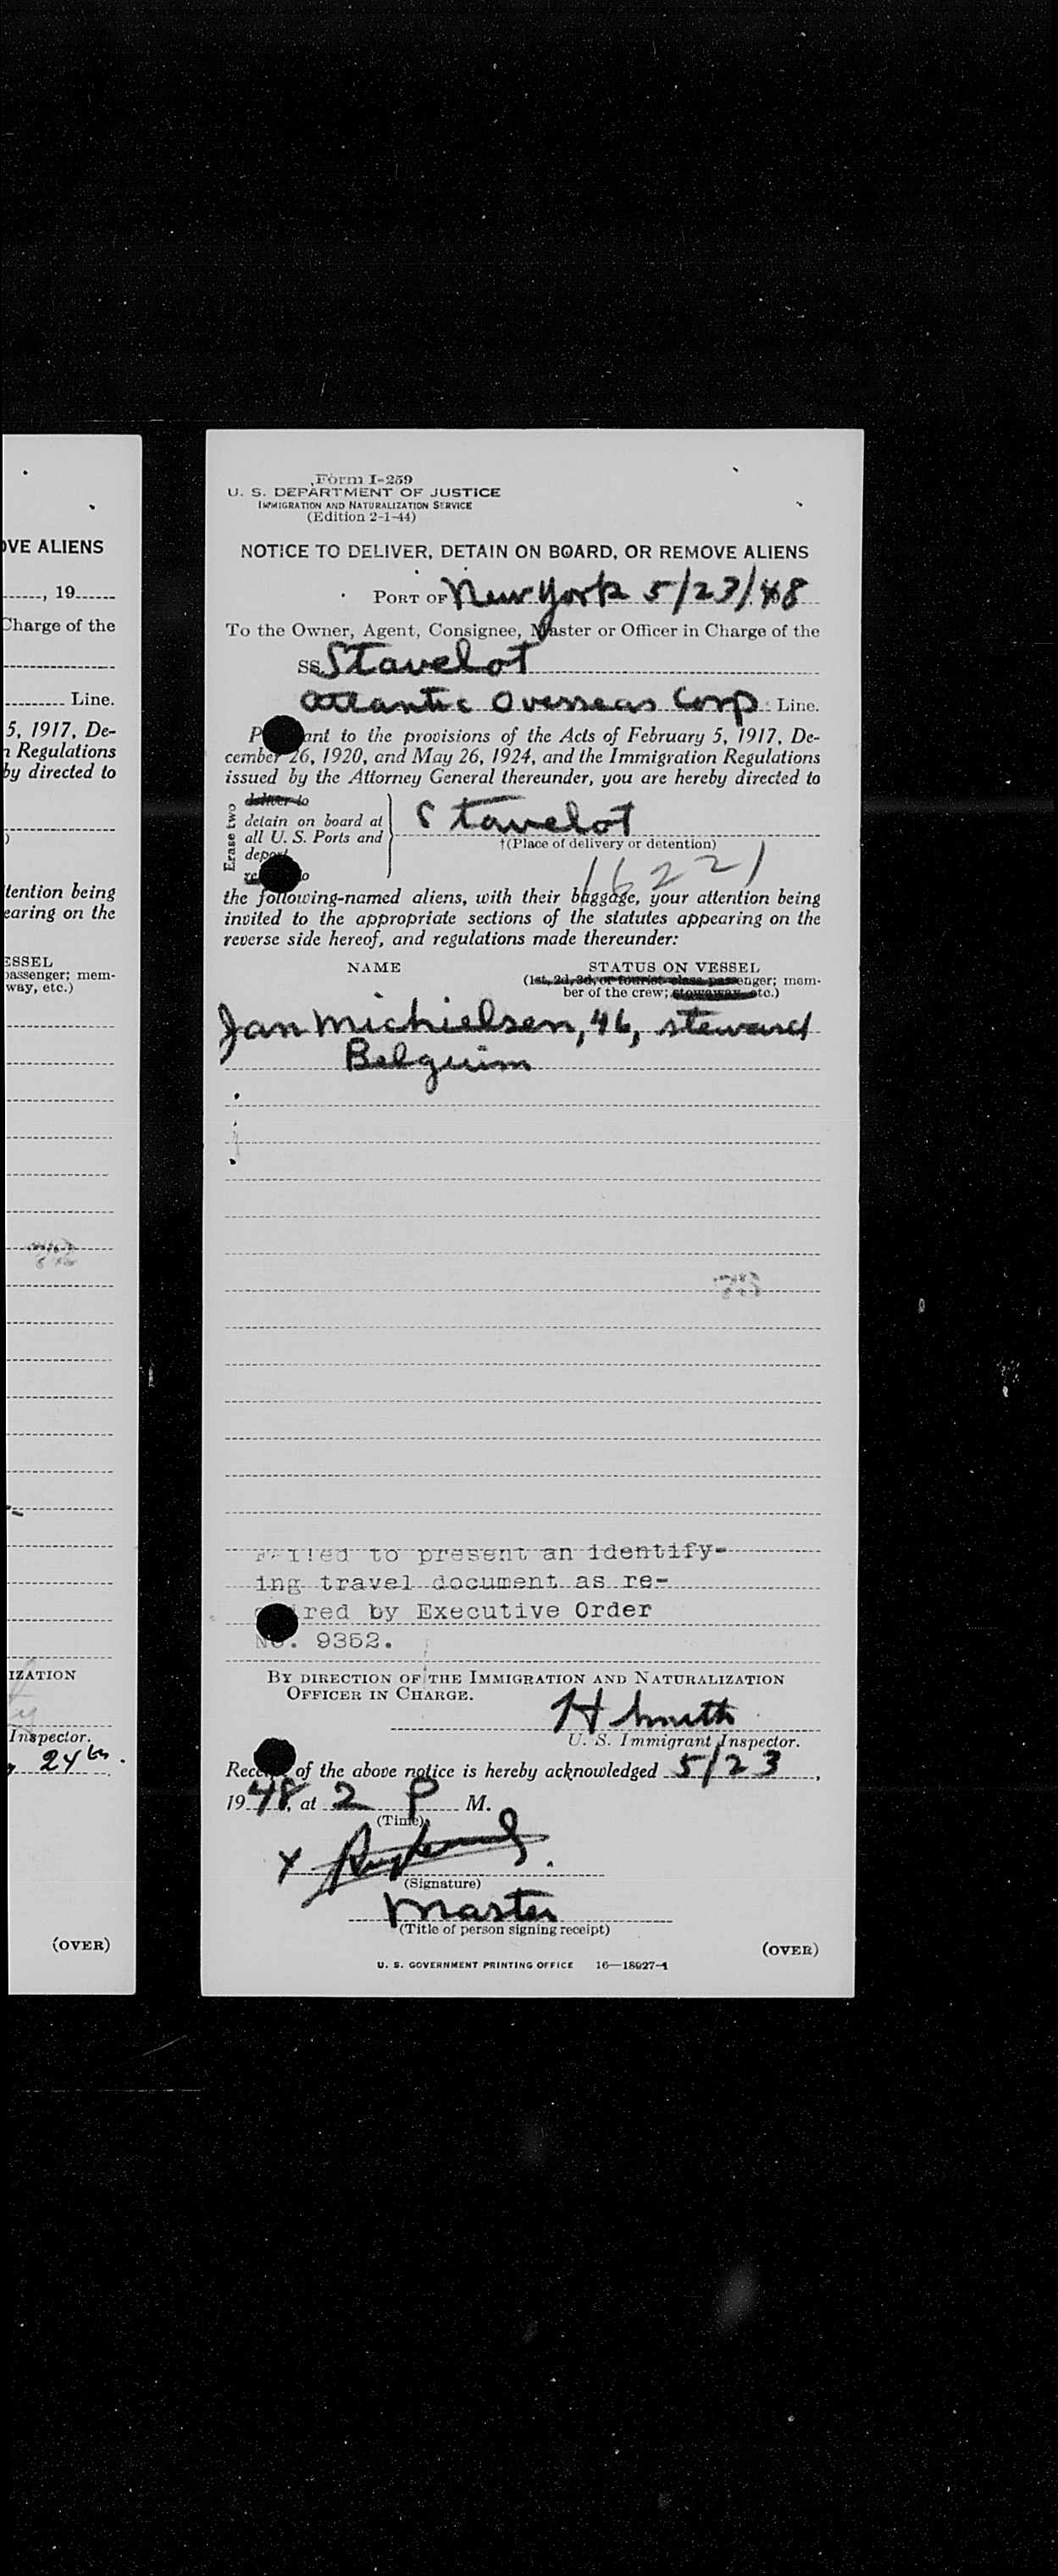 OVE ALIENS
, 19
Charge of the
Line.
5, 1917, De-
n Regulations
by directed to
)
tention being
earing on the
ESSEL
passenger; mem-
way, etc.)
IZATION
Inspector.
24
(OVER)
Form I-259
U. S. DEPARTMENT OF JUSTICE
IMMIGRATION AND NATURALIZATION SERVICE
(Edition 2-1-44)
NOTICE TO DELIVER, DETAIN ON BOARD, OR REMOVE ALIENS
PORT OF New York 5/23/48
To the Owner, Agent, Consignee, Master or Officer in Charge of the
SS. Stavelot
Atlantic Overseas Corp Line.
P ant to the provisions of the Acts of February 5, 1917, De-
cember 26, 1920, and May 26, 1924, and the Immigration Regulations
issued by the Attorney General thereunder, you are hereby directed to
Erase two
deliver to
detain on board at
all U. S. Ports and
deport
Stavelot
†(Place of delivery or detention)
16221
the following-named aliens, with their baggage, your attention being
invited to the appropriate sections of the statutes appearing on the
reverse side hereof, and regulations made thereunder:
NAME STATUS ON VESSEL
(1st, 2d, 3d, or tourist class passenger; mem-
ber of the crew; stowaway etc.)
Jan Michielsen, 46, steward
Belguim
Failed to present an identify-
ing travel document as re-
ired by Executive Order
No. 9352.
BY DIRECTION OF THE IMMIGRATION AND NATURALIZATION
OFFICER IN CHARGE.
H Smith
U. S. Immigrant Inspector.
Rece of the above notice is hereby acknowledged 5/23,
1948, at 2 P M.
(Time)
X
(Signature)
Master
(Title of person signing receipt)
(OVER)
U. S. GOVERNMENT PRINTING OFFICE 16—18027-1